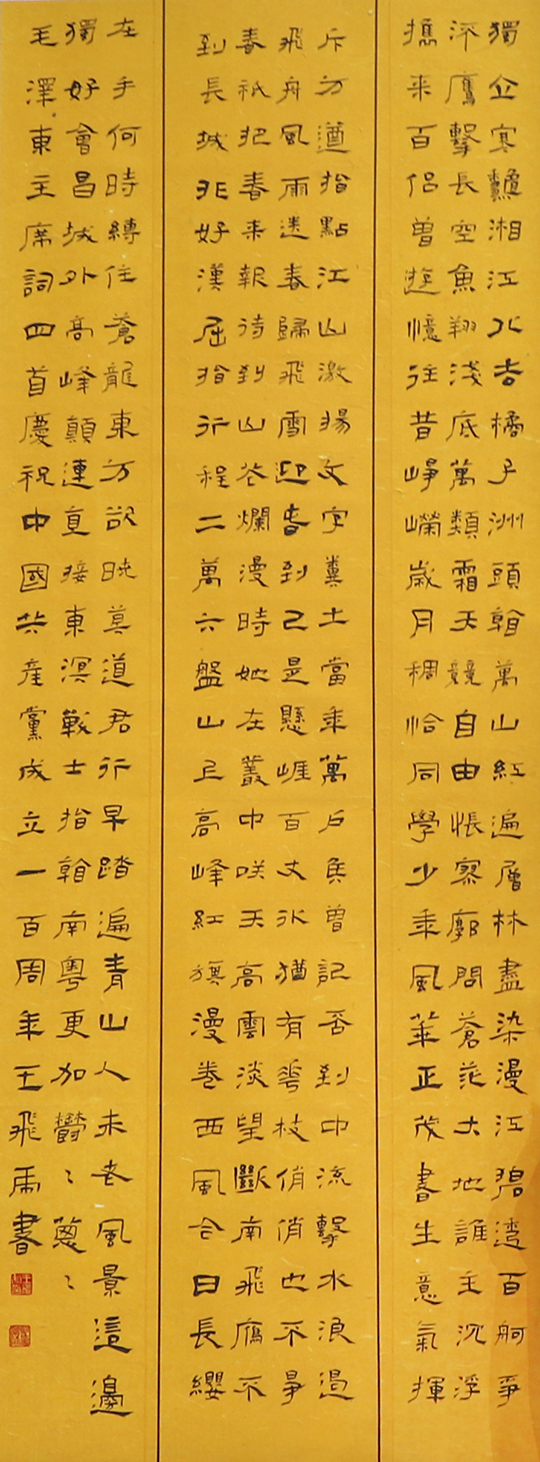 獨立寒龝湘江北去橘子洲頭看萬山紅遍層林盡染漫江碧透百舸爭
流鷹擊長空魚翔淺底萬類霜天競自由悵寥廓問蒼茫大地誰主沉浮
攜來百侶曾遊憶往昔崢嶸歲月稠恰同學少年風華正茂書生意氣揮
斥方遒指點江山激揚文字糞土當年萬戶侯曾記否到中流擊水浪遏
飛舟風雨送春歸飛雪迎春到已是懸崖百丈冰猶有花枝俏俏也不爭
春祇把春來報待到山花爛漫時她在叢中咲天高雲淡望斷南飛雁不
到長城非好漢屈指行程二萬六盤山上高峰紅旗漫卷西風今日長纓
在手何時縛住蒼龍東方欲曉莫道君行早踏遍青山人未老風景這邊
獨好會昌城外高峰顛連直接東溟戰士指看南粵更加鬱〻蔥〻
毛澤東主席詞四首慶祝中國共產黨成立一百周年王飛虎書